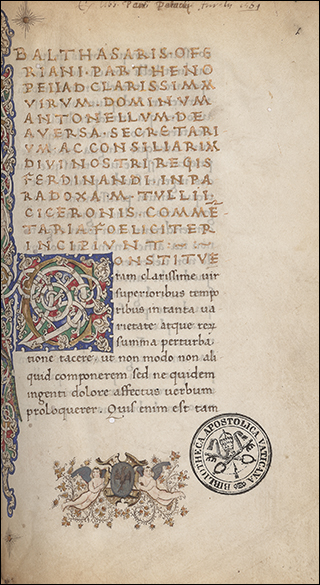 Ex libris
BALTHASARIS·OFE
RIANI·PARTHENO
PEII AD CLARISSIMVM
VIRVM·DOMINVM
ANTONELLVM·DE
AVERSA·SECRETARI
VM AC CONSILIARIṼ
DIVI NOSTRI REGIS
FERDINANDI, IN PA
RADOXA·M·TVLLII
CICERONIS COMMẼ
TARIA FOELICITER
INCIPIVNT
CONSTITVE
ram clarissime uir
superioribus tempo
ribus in tanta ua
rietate atque rerũ
summa perturba
tione tacere, ut non modo non ali
quid componerem sed ne quidem
ingenti dolore affectus uerbum
proloquerer. Quis enim est tam
BIBLIOTHECA APOSTOLICA VATICANA